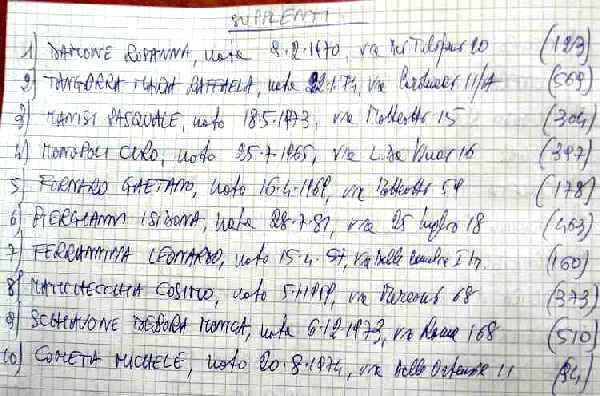 SUPPLENTI
1) DAMONE ROSANNA, nata 8.2.1970, via 20 (123)
2) TANGORRA MARIA RAFFAELA, nata 22.1.74, via Carducci 11/A (569)
3) MANISI PASQUALE, nato 18.5.1973, via Matteotti 15 (304)
4) MONOPOLI CIRO, nato 25.7.1965, via L. Da Vinci 16 (397)
5) FORNARO GAETANO, nato 16.4.1969, via Matteotti 54 (178)
6) PIERGIANNI ISIDORA, nata 28.7.81, via 25 Luglio 18 (463)
7) FERRANNINA LEONARDO, nato 15.4.57, via delle (160)
8) COSIMO, nato via 68 (373)
9) SCHIAVONE DEBORA MONICA, nata 6.12.1973, via Roma 168 (510)
10) COMETA MICHELE, nato 20.8.1974, via delle 11 (94)